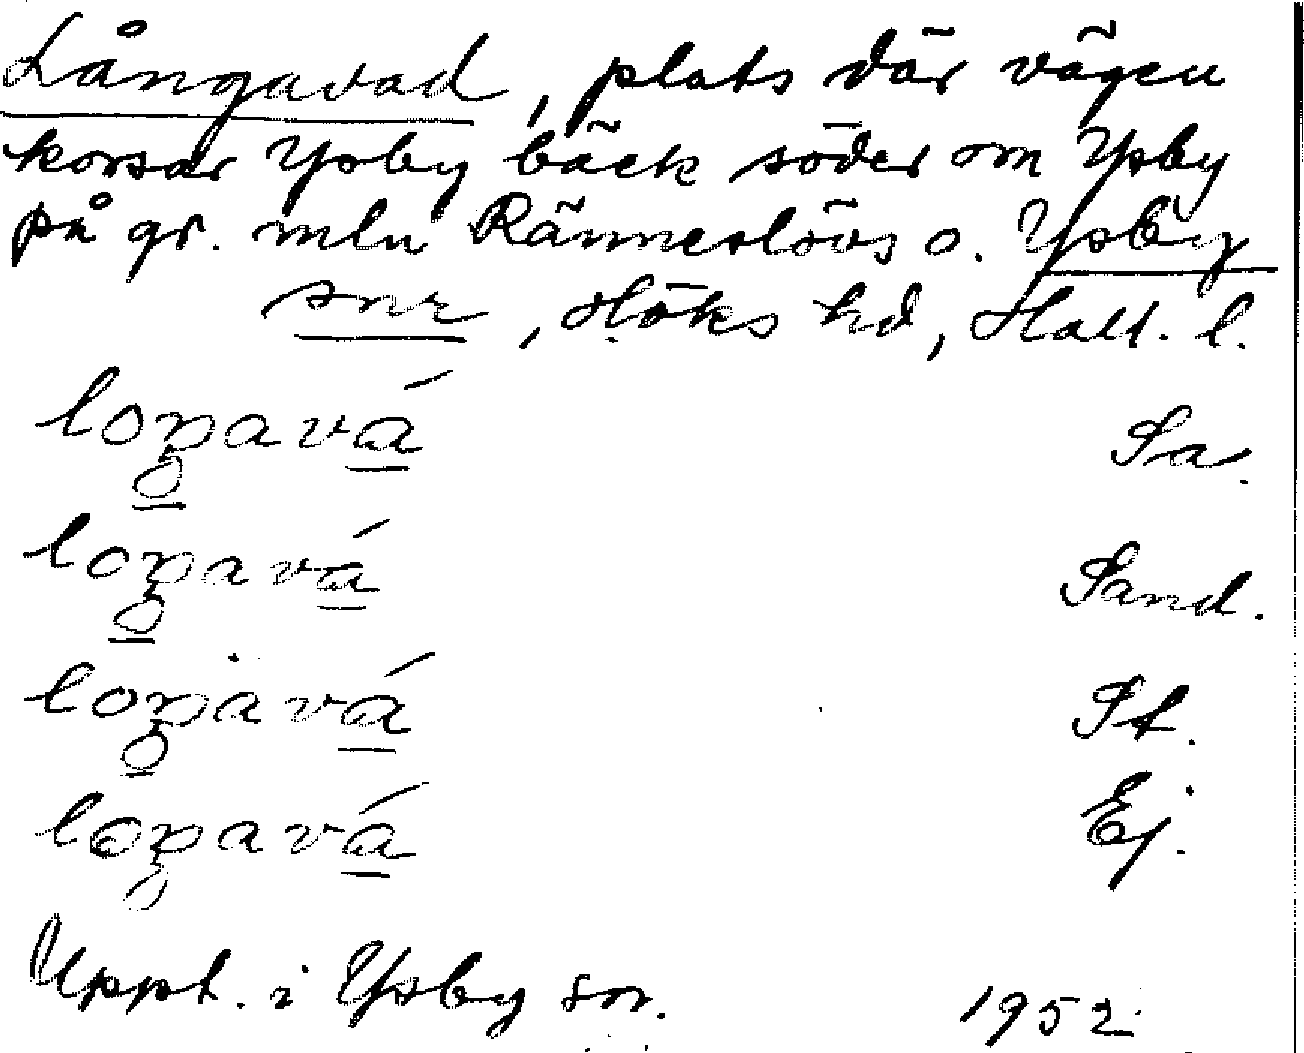 Långavad, plats där vägen
korsar Ysby bäck söder om Ysby
på gr. mln Ränneslövs o. Ysby
snr, Höks hd, Hall. l.
Sa.
Sand.
St.
Ej.
Uppt. i Ysby sn. 1952